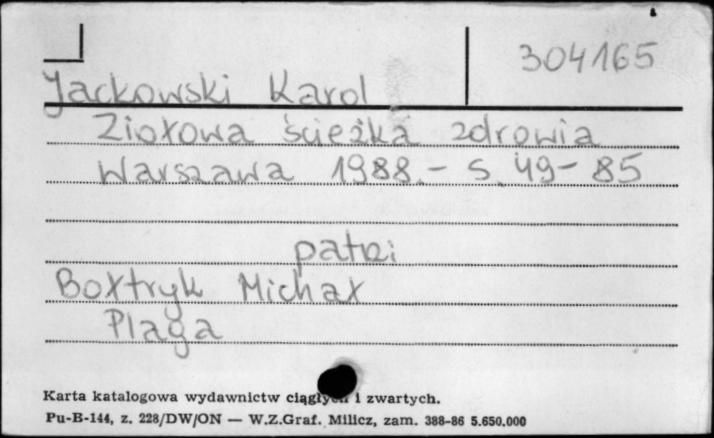 304165
Jackowski Karol
Ziołowa ścieżka zdrowia
Warszawa 1988.- S. 49-85
patrz:
Bołtryk Michał
Plaga
Karta katalogowa wydawnictw ciągłych i zwartych.
Pu-B-144, z. 228/DW/ON — W.Z.Graf. Milicz, zam. 388-86 5.650.000